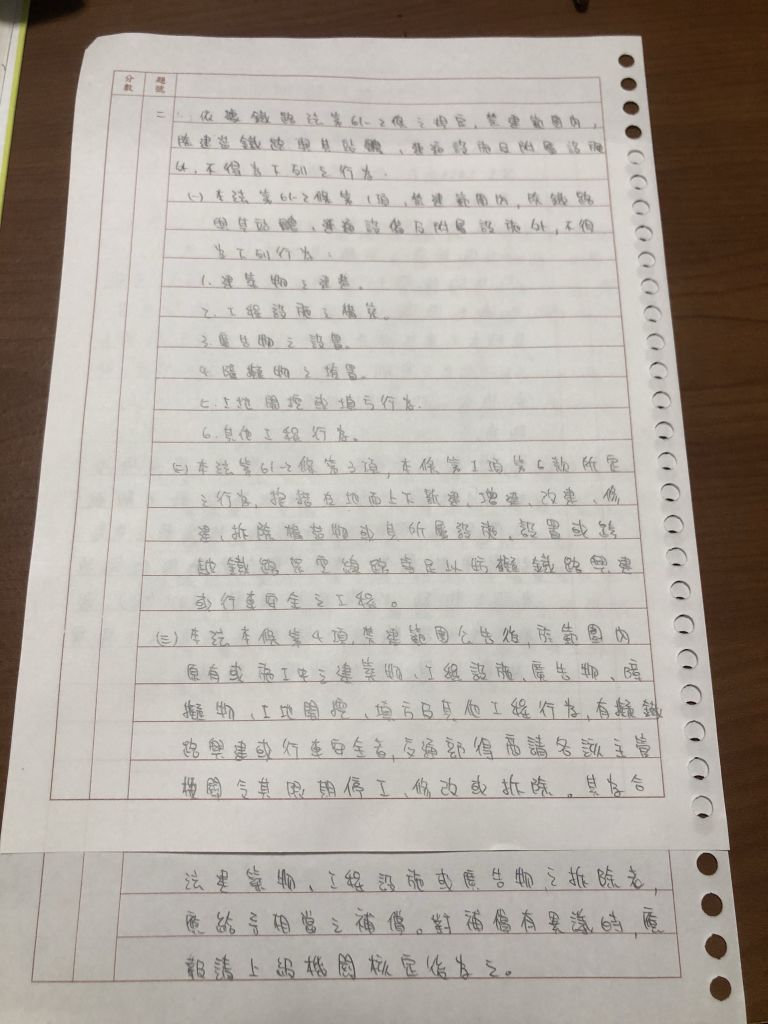 分數 題號
二 依據鐵路法第61-2條之規定,禁建範圍內,
除建造鐵路與其站體、通道設施及附屬設施
外,不得為下列之行為:
(一)本法第61-2條第1項,禁建範圍內,除鐵路
與其站體、通道設備及附屬設施外,不得
為下列行為:
1.建築物之建造。
2.工程設施之構築。
3.廣告物之設置。
4.障礙物之堆置。
5.土地開挖或填方行為.
6.其他工程行為。
(二)本法第61-2條第3項,本條第1項第6款所定
之行為,包括在地面上下新建、增建、改建、修
建、拆除構造物或其所屬設施、設置或跨
越鐵路架空線路等足以妨礙鐵路興建
或行車安全之工程。
(三)本法本條第4項,禁建範圍公告後,於範圍內
原有或施工中之建築物、工程設施、廣告物、障
礙物、土地開挖、填方及其他工程行為,有礙鐵
路興建或行車安全者,交通部得商請各該主管
機關令其限期停工、修改或拆除。其為合
法建築物、工程設施或廣告物之拆除者,
應給予相當之補償。對補償有異議時,應
報請上級機關核定後為之。